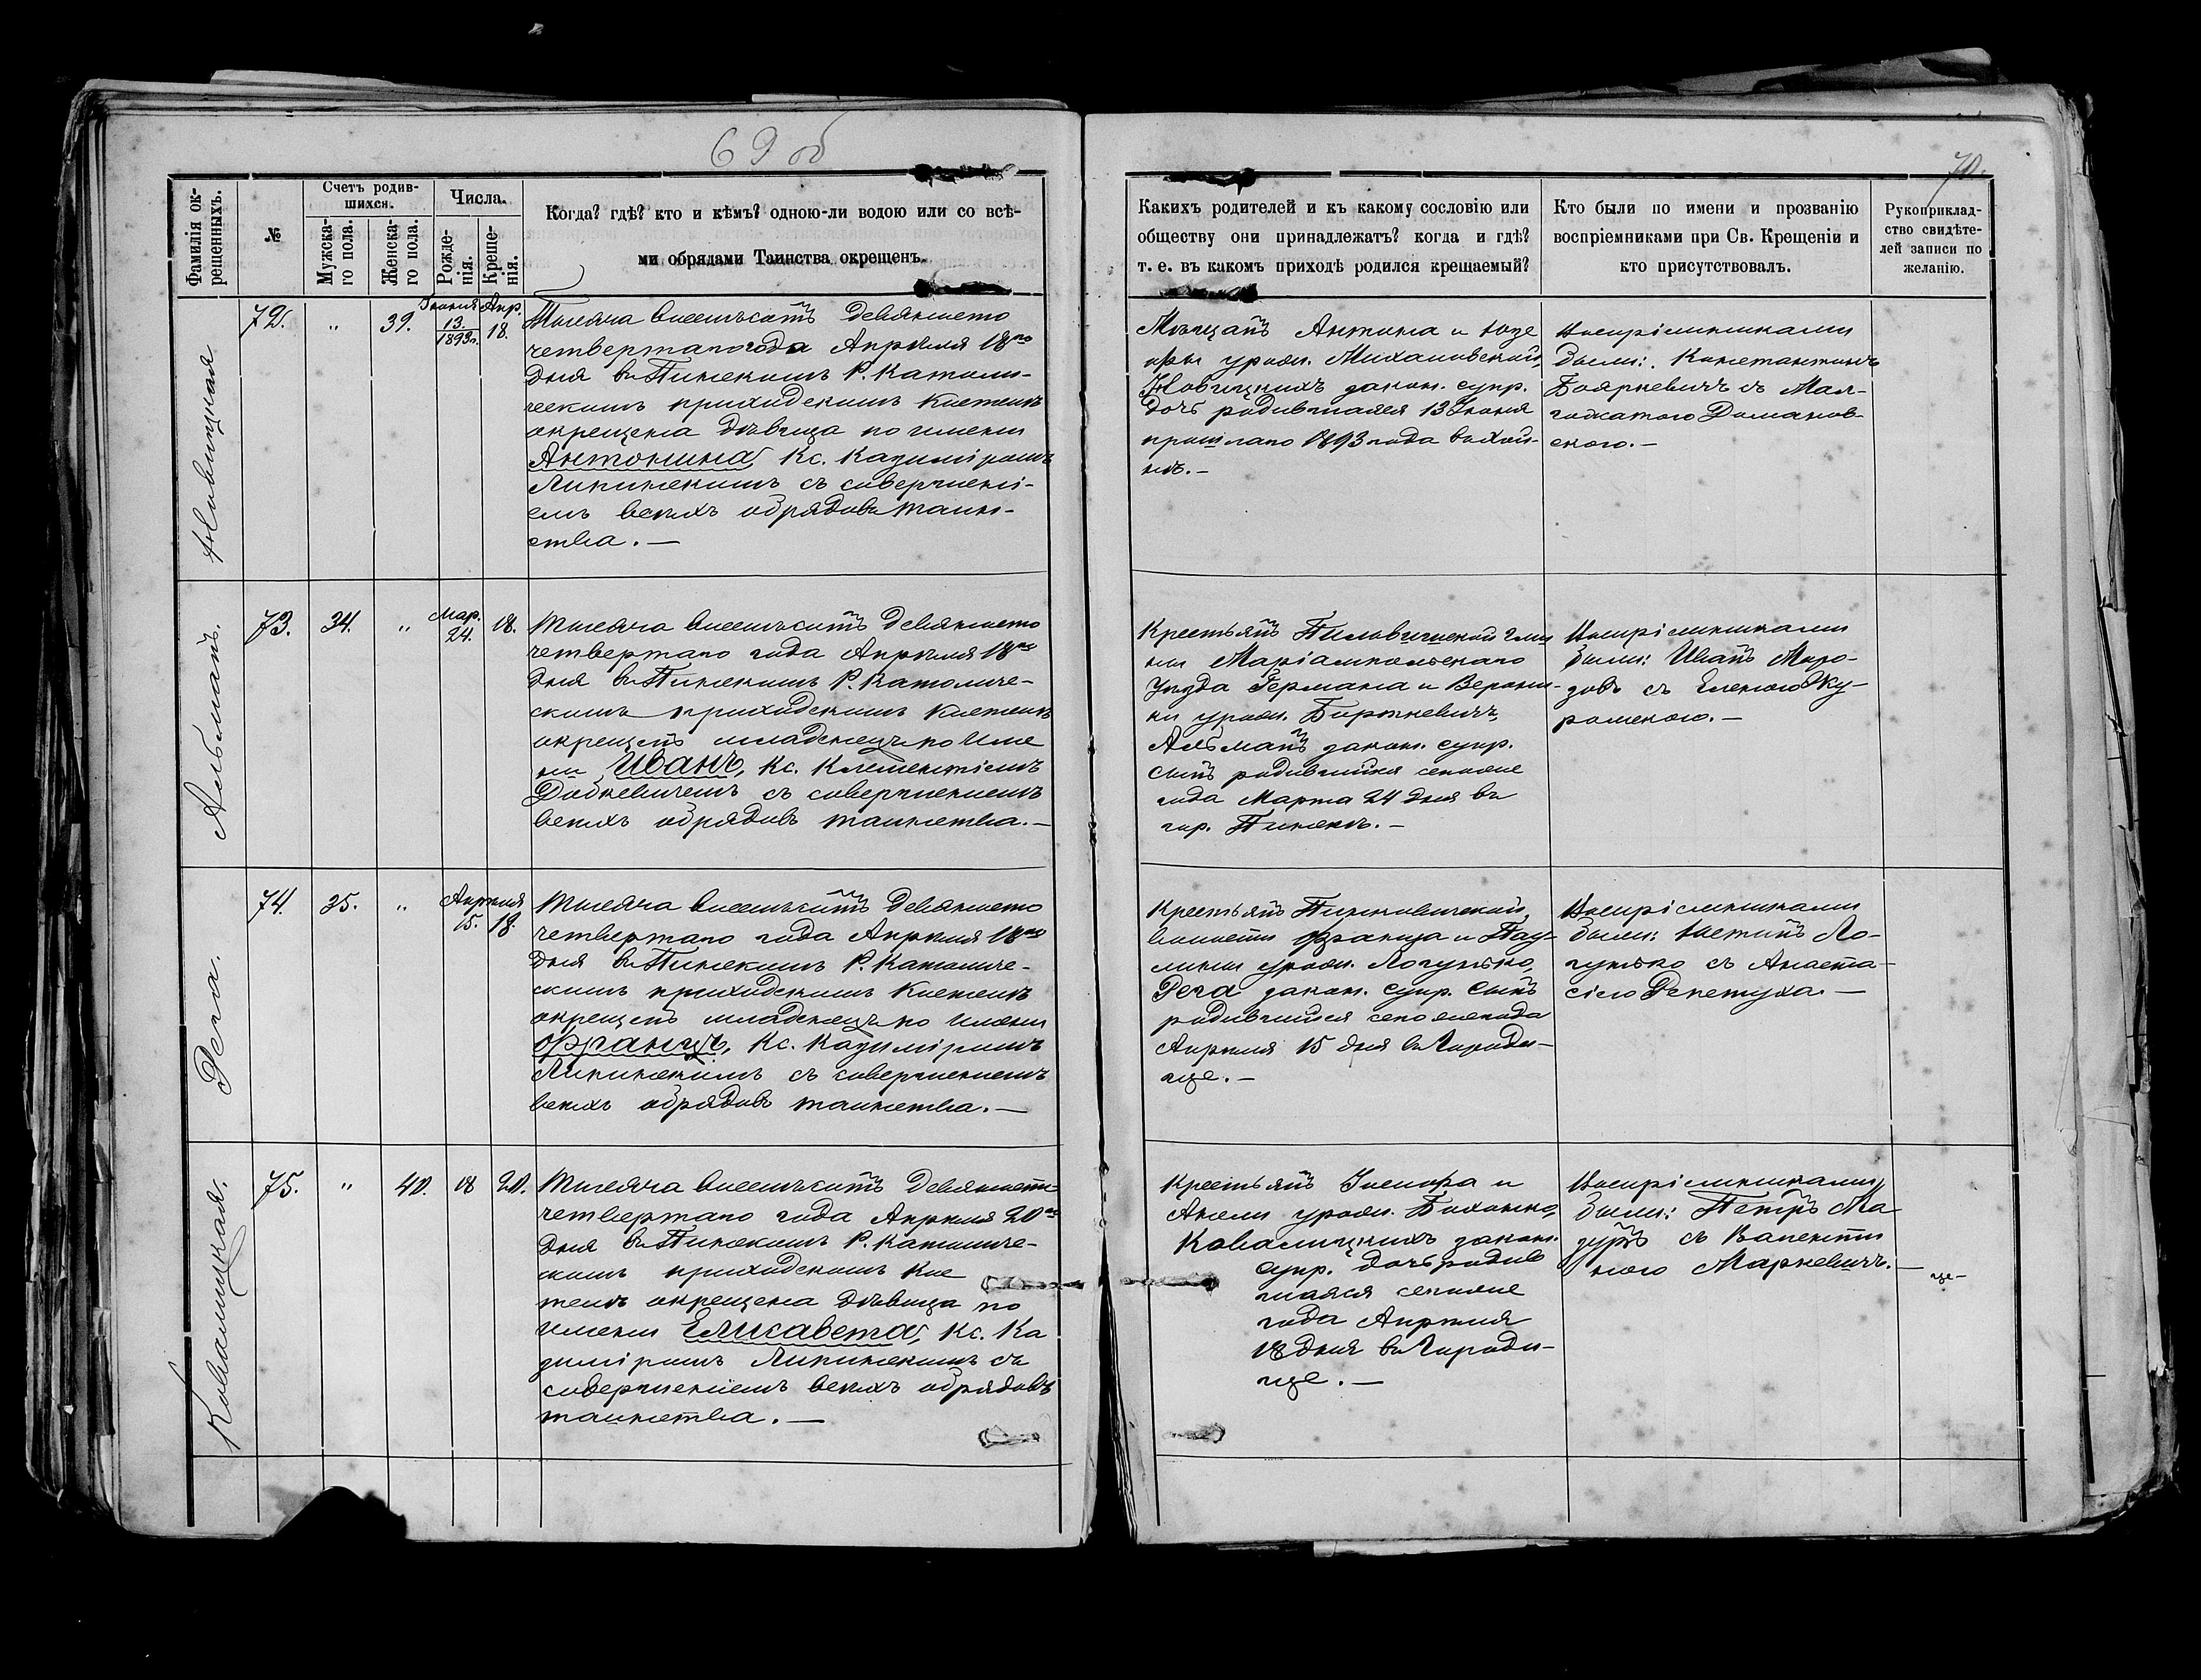 69 об
70.
Фамилія ок-
рещенныхъ.
№
Счетъ родив-
шихся.
Мужска-
го пола.
Женска-
го пола.
Числа.
Рожде-
нія.
Креще-
нія.
Когда? гдѣ? кто и кѣмъ? одною-ли водою или со всѣ-
ми обрядами Таинства окрещенъ.
Какихъ родителей и къ какому сословію или
обществу они принадлежатъ? когда и гдѣ?
т. е. въ какомъ приходѣ родился крещаемый?
Кто были по имени и прозванію
воспріемниками при Св. Крещеніи и
кто присутствовалъ.
Рукоприклад-
ство свидѣте-
лей записи по
желанію.
Новицкая
72.
"
39.
Іюня
13.
1893г.
Апр.
18.
Тысяча восемьсотъ девяносто
четвертаго года Апрѣля 18го
дня въ Пинскомъ Р. Католи-
ческомъ приходскомъ костелѣ
окрещена дѣвица по имени
Антонина, Кс. Казиміромъ
Липинскимъ съ совершені-
емъ всѣхъ обрядовъ таин-
ства. —
Мѣщанъ Антона и Юзе
фы урожд. Михаловской,
Новицкихъ закон. супр.
дочь родившаяся 13 Іюня
прошлаго 1893 года
Воспріемниками
были: Константинъ
Бояркевичъ съ Мал-
гожатою Доманов-
скою. —
Альманъ.
73.
34.
"
Мар.
24.
18.
Тысяча восемьсотъ девяносто
четвертаго года Апрѣля 18го
дня въ Пинскомъ Р. Католиче-
скомъ приходскомъ костелѣ
окрещенъ младенецъ по име
ни Иванъ, Кс. Клементіемъ
съ совершеніемъ
всѣхъ обрядовъ таинства. —
Крестьянъ Пильвишской гми
ны Маріампольскаго
Уѣзда Германа и Верони-
ки урожд. Борткевичъ,
Альманъ закон. супр.
сынъ родившійся сего же
года Марта 24 дня въ
гор. Пинскѣ. —
Воспріемниками
были: Иванъ Моро-
зовъ съ Еленою Жу-
ромскою. —
Рега.
74.
35.
"
Апрѣля
15.
18.
Тысяча восемьсотъ девяносто
четвертаго года Апрѣля 18го
дня въ Пинскомъ Р. Католиче-
скомъ приходскомъ костелѣ
окрещенъ младенецъ по имени
Францъ, Кс. Казиміромъ
Липинскимъ съ совершеніемъ
всѣхъ обрядовъ таинства. —
Крестьянъ Пинковичской
волости Франца и Пау-
лины урожд. Логунько,
Рега закон. супр. сынъ
родившійся сего же года
Апрѣля 15 дня въ Городи-
ще. —
Воспріемниками
были: Юстинъ Ло-
гунько съ Анаста-
сіею Репетуха. —
Ковалицкая.
75.
"
40.
18
20.
Тысяча восемьсотъ девяносто
четвертаго года Апрѣля 20го
дня въ Пинскомъ Р. Католиче-
скомъ приходскомъ кос
телѣ окрещена дѣвица по
имени Елисавета, Кс. Ка
зиміромъ Липинскимъ съ
совершеніемъ всѣхъ обрядовъ
таинства. —
Крестьянъ Іосифа и
Анели урожд. Боханко,
Ковалицкихъ закон.
супр. дочь родив
шаяся сего же
года Апрѣля
18 дня въ Городи-
ще. —
Воспріемниками
были: Петръ Ма
зуръ съ Валенти
ною Маркевичъ. —